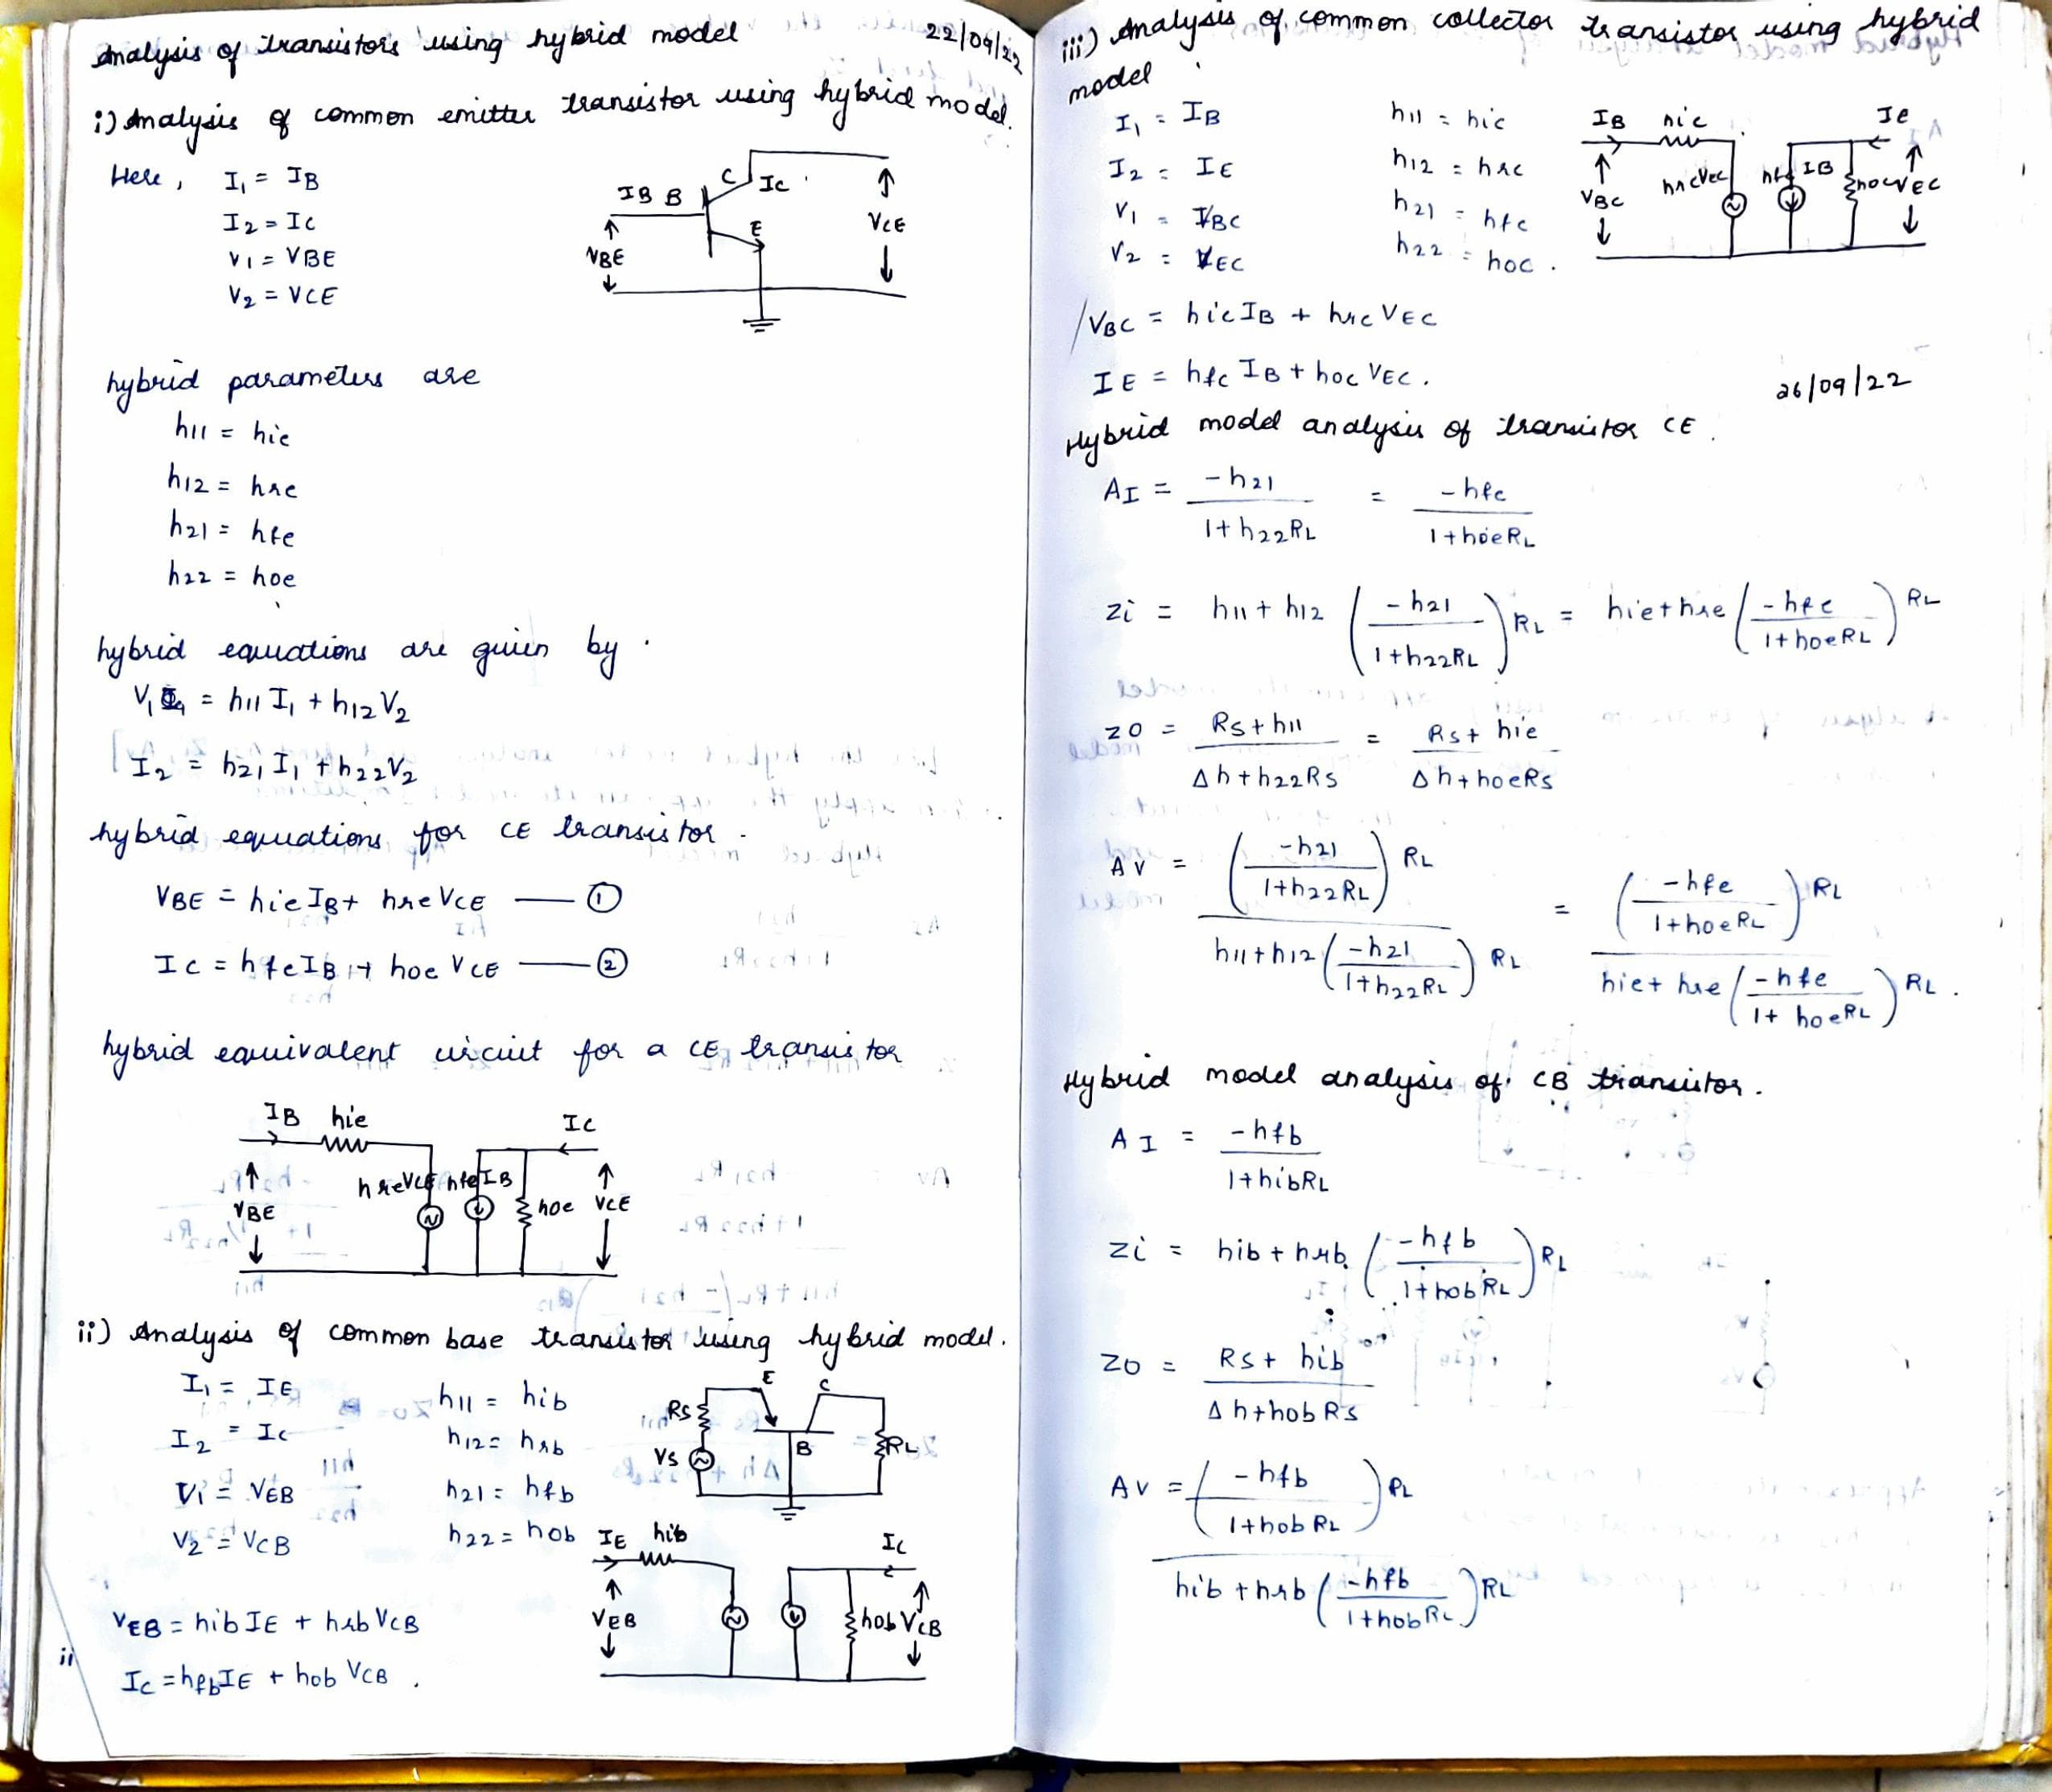 Analysis of transistors using hybrid model 22/09/22
i) Analysis of common emitter transistor using hybrid model.
Here, I1 = IB
I2 = IC
V1 = VBE
V2 = VCE
IB B C IC E
VBE VCE
hybrid parameters are
h11 = hie
h12 = hre
h21 = hfe
h22 = hoe
hybrid equations are given by
V1 = h11 I1 + h12 V2
I2 = h21 I1 + h22 V2
hybrid equations for CE transistor
VBE = hie IB + hre VCE —— ①
IC = hfe IB + hoe VCE —— ②
hybrid equivalent circuit for a CE transistor
IB hie IC
VBE hreVCE hfeIB hoe VCE
ii) Analysis of common base transistor using hybrid model.
I1 = IE h11 = hib
I2 = IC h12 = hrb
V1 = VEB h21 = hfb
V2 = VCB h22 = hob
RS VS E C B RL
IE hib IC
VEB hob VCB
VEB = hib IE + hrb VCB
IC = hfb IE + hob VCB .
ii
iii) Analysis of common collector transistor using hybrid
model
I1 = IB h11 = hic
I2 = IE h12 = hrc
V1 = VBC h21 = hfc
V2 = VEC h22 = hoc .
IB hic Ie
VBC hrcVec hfc IB hoc VEC
VBC = hic IB + hrc VEC
IE = hfc IB + hoc VEC .
26/09/22
Hybrid model analysis of transistor CE .
AI = -h21 / 1+h22RL = -hfe / 1+hoeRL
Zi = h11 + h12 (-h21 / 1+h22RL) RL = hie+hre (-hfe / 1+hoeRL) RL
Z0 = RS+h11 / Δh+h22RS = RS+hie / Δh+hoeRS
AV = (-h21 / 1+h22RL) RL / h11+h12 (-h21 / 1+h22RL) RL = (-hfe / 1+hoeRL) RL / hie+hre (-hfe / 1+hoeRL) RL .
Hybrid model analysis of CB transistor .
AI = -hfb / 1+hibRL
Zi = hib + hrb (-hfb / 1+hobRL) RL
Z0 = RS+hib / Δh+hobRS
AV = (-hfb / 1+hobRL) RL / hib+hrb (-hfb / 1+hobRL) RL